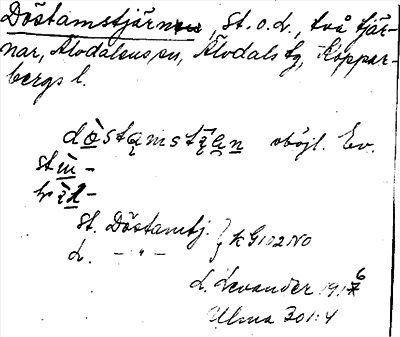 Döstamstjärn, St. o. L., två tjär-
nar, Älvdalens sn, Älvdals tg, Koppar-
bergs l.
döstamstjän oböjl. Ev.
St. Döstamtj. } KG102NO
L. — " —
L. Levander 1916
Ulma 301:4